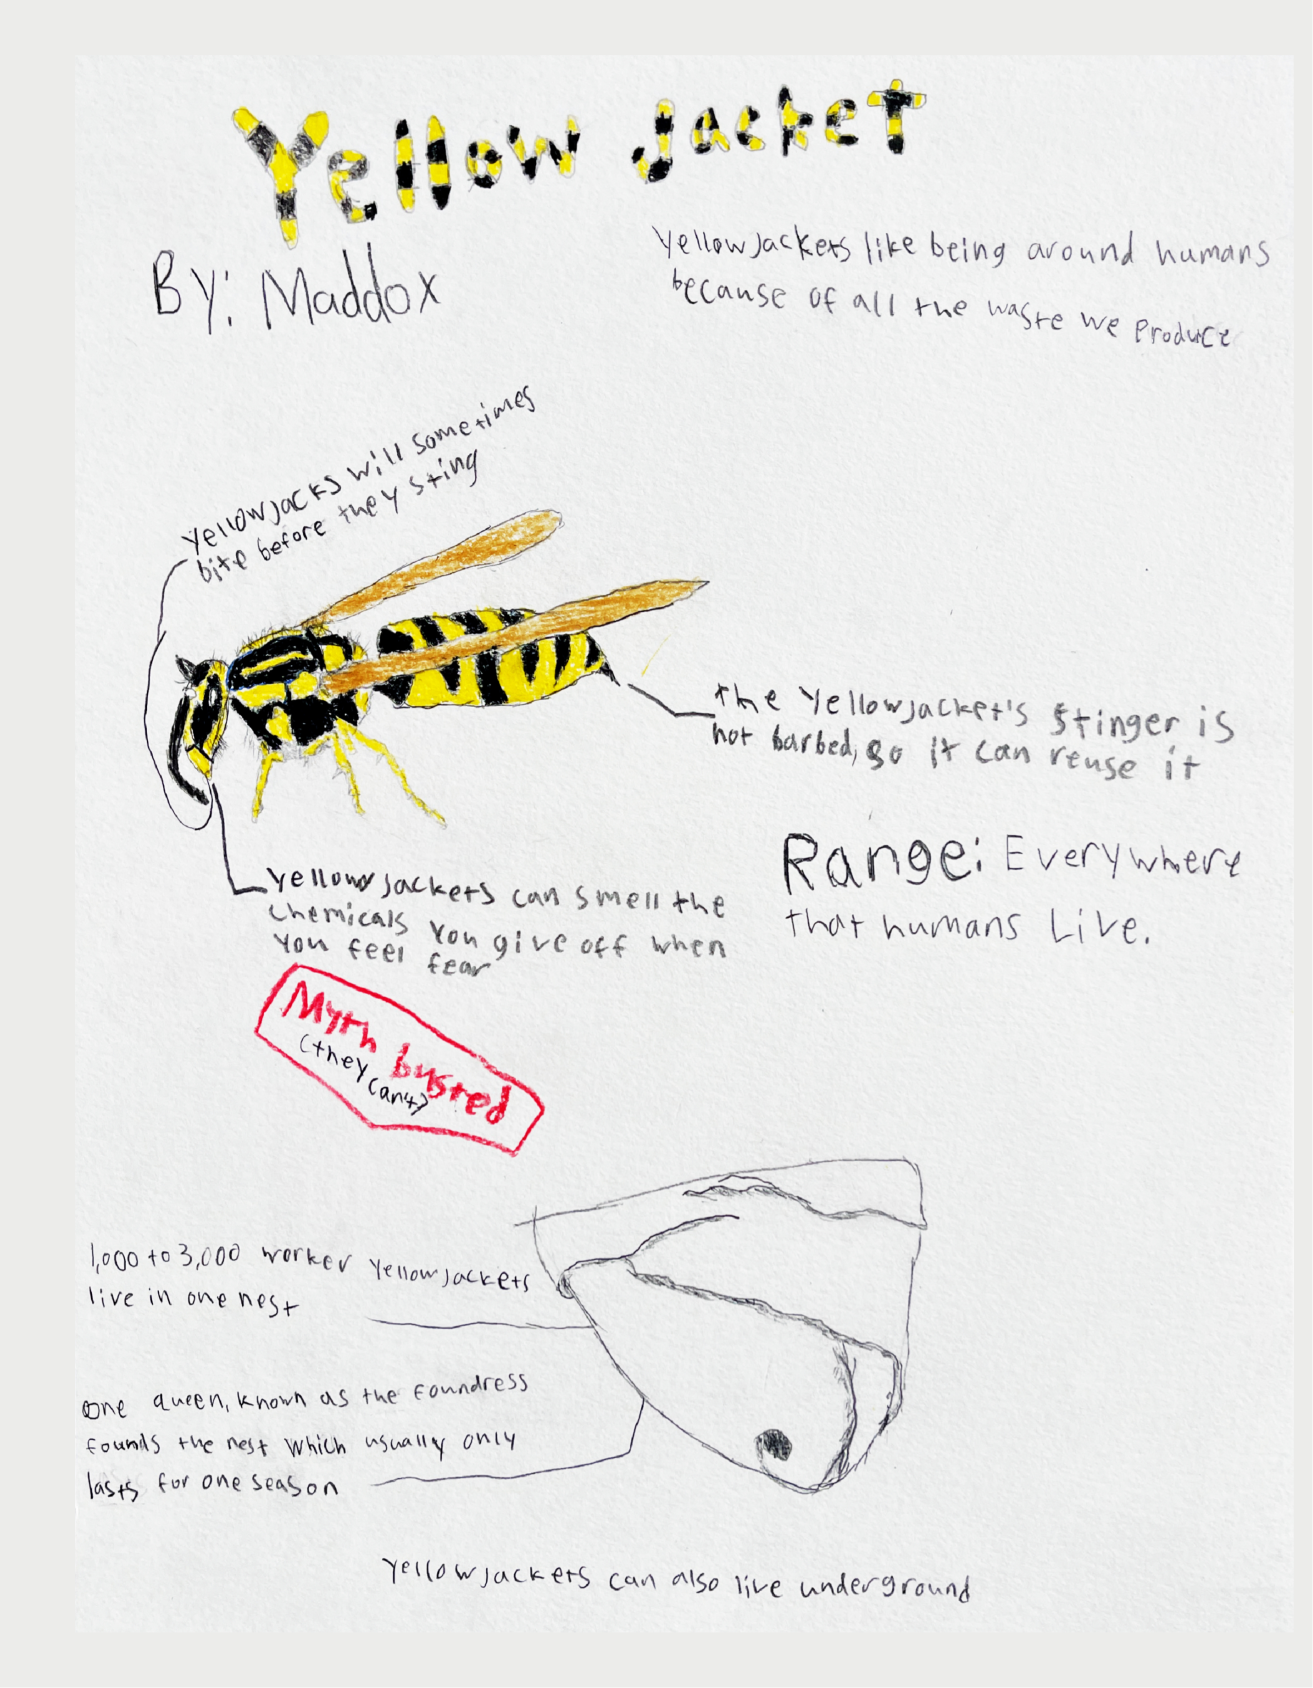 Yellow Jacket
By: Maddox
Yellowjackets like being around humans
because of all the waste we produce
Yellowjacks will sometimes
bite before they sting
the Yellowjacket's stinger is
not barbed, so it can reuse it
Range: Everywhere
that humans Live.
Yellowjackets can smell the
chemicals you give off when
you feel fear
Myth busted
(they can't)
1,000 to 3,000 worker Yellowjackets
live in one nest
one queen, known as the foundress
founds the nest which usually only
lasts for one season
Yellowjackets can also live underground